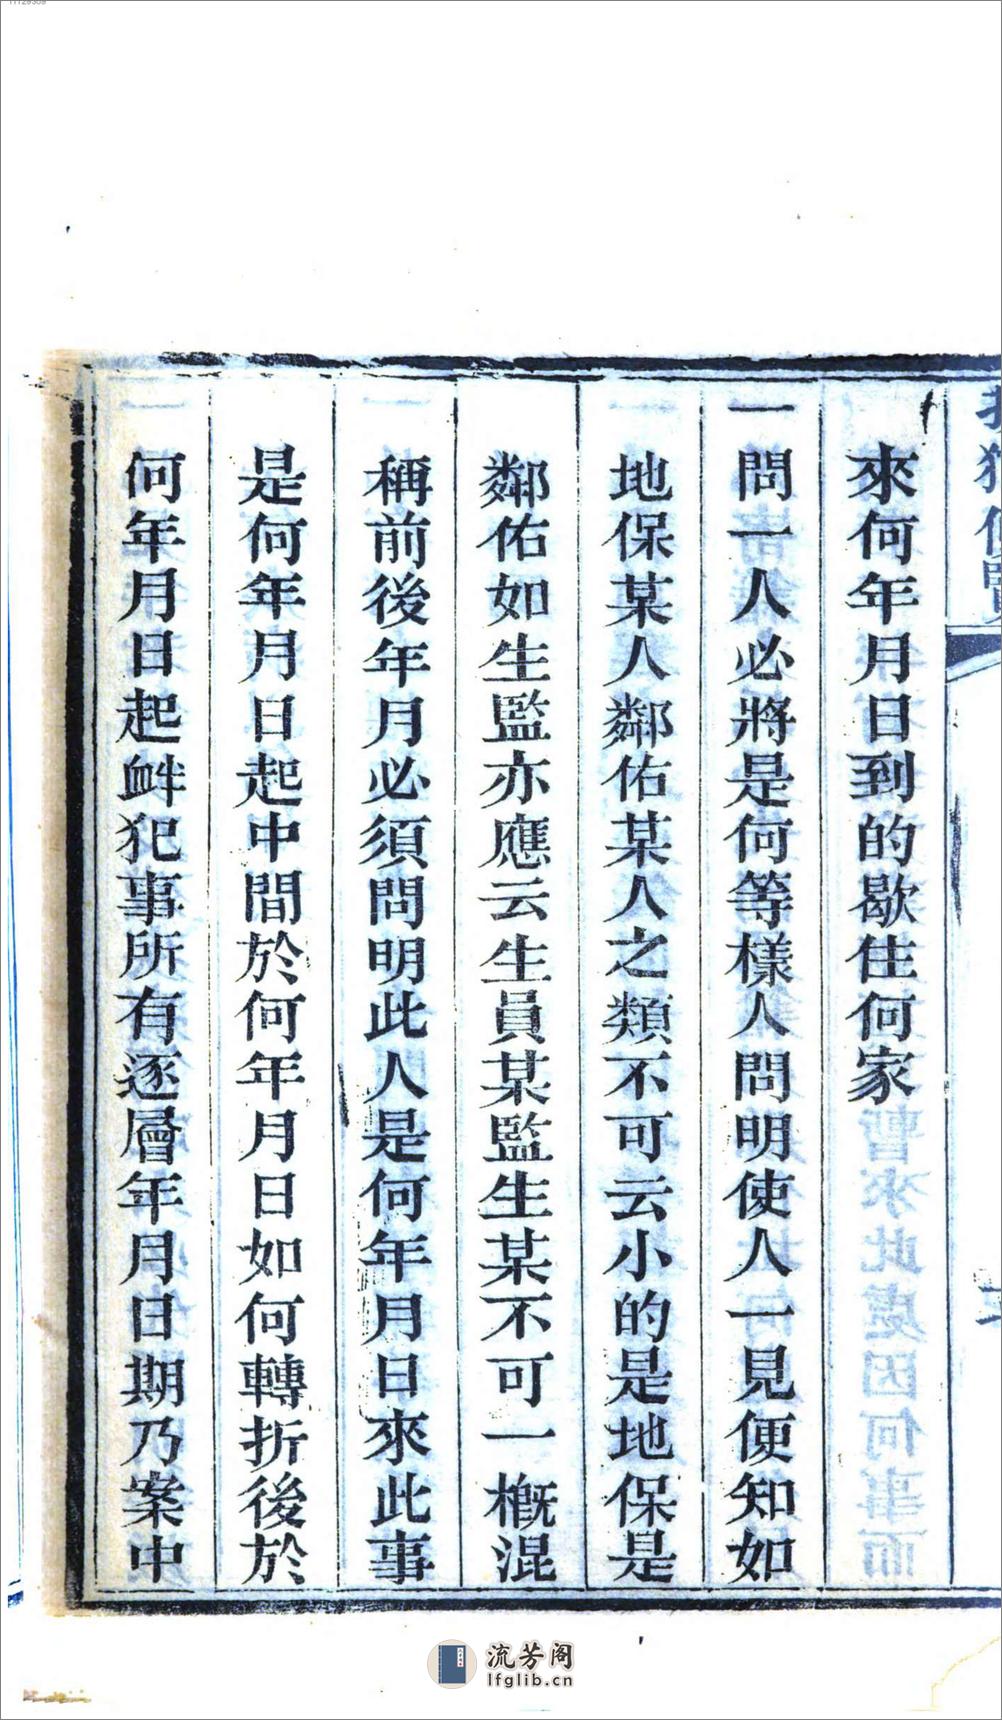 來何年月日到的歇住何家
一問一人必將是何等樣人問明使人一見便知如
地保某人鄰佑某人之類不可云小的是地保是
鄰佑如生監亦應云生員某監生某不可一概混
稱前後年月必須問明此人是何年月日來此事
是何年月日起中間於何年月日如何轉折後於
何年月日起衅犯事所有逐層年月日期乃案中
流芳阁
lfglib.cn